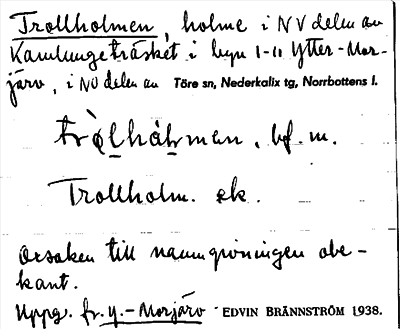 Trollholmen, holme i NV delen av
Kamlungeträsket i byn 1-11 Ytter-Mor-
järv, i NÖ delen av Töre sn, Nederkalix tg, Norrbottens l.
bf. m.
Trollholm. ek.
Orsaken till namngivningen obe-
kant.
Uppg. fr. Y.-Morjärv EDVIN BRÄNNSTRÖM 1938.